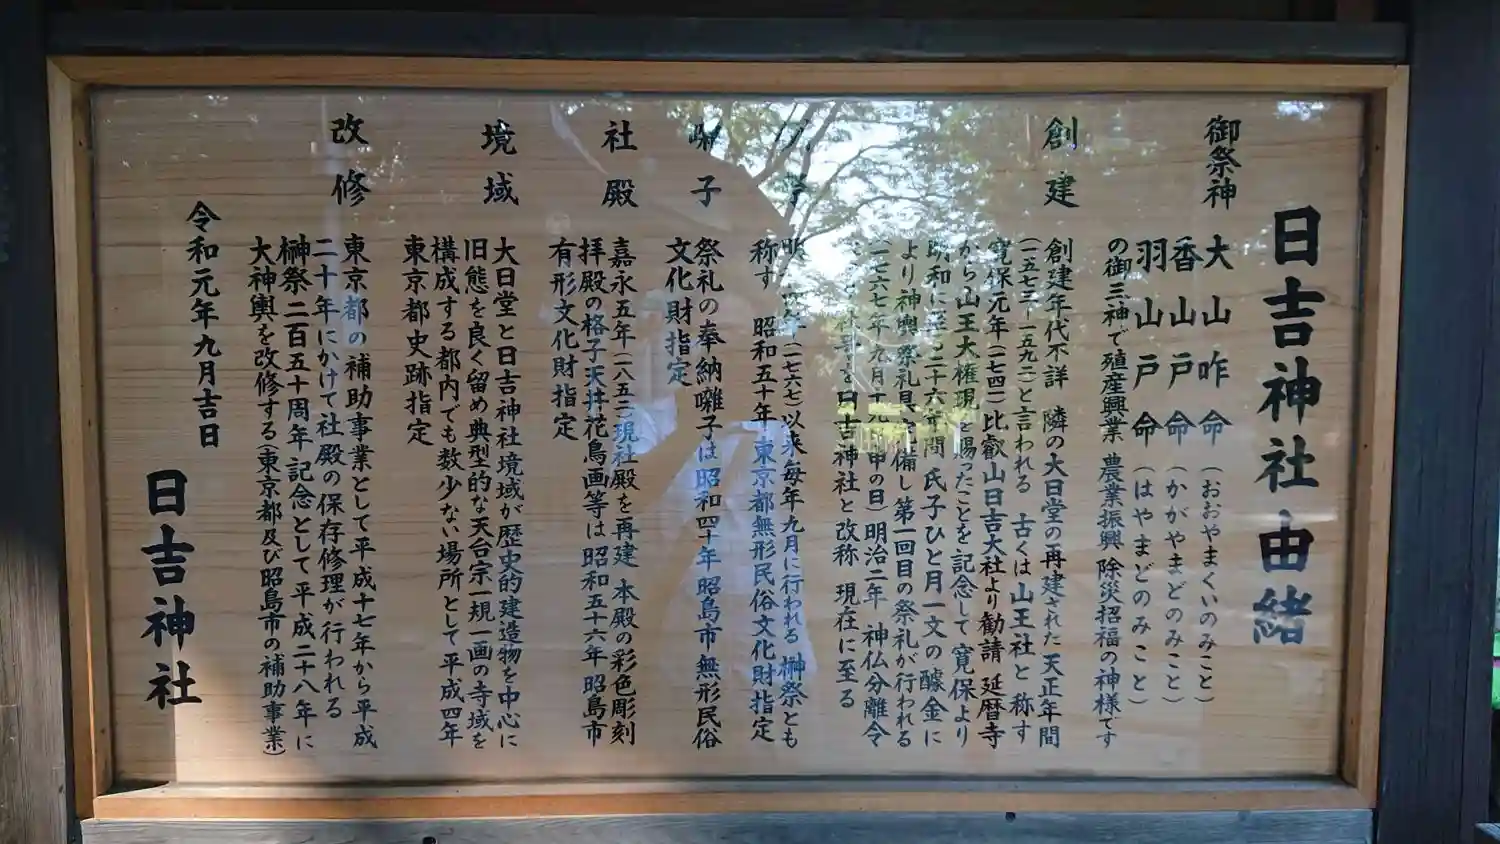 日吉神社由緒
御祭神
大山咋命(おおやまくいのみこと)
香山戸命(かがやまどのみこと)
羽山戸命(はやまどのみこと)
の御三神で殖産興業 農業振興 除災招福の神様です
創建
創建年代不詳 隣の大日堂の再建された天正年間
(一五七三ー一五九二)と言われる 古くは山王社と称す
寛保元年(一七四一)比叡山日吉大社より勧請 延暦寺
から山王大権現を賜ったことを記念して寛保より
明和に至る二十六年間氏子ひと月一文の醵金に
より神輿 祭礼具 備し第一回目の祭礼が行われる
(一七六七年九月十九 申の日)明治二年 神仏分離令
を日吉神社と改称 現在に至る
年(一七六七)以来毎年九月に行われる榊祭とも
称す 昭和五十年東京都無形民俗文化財指定
囃子
祭礼の奉納囃子は昭和四十年昭島市無形民俗
文化財指定
社殿
嘉永五年(一八五二)現社殿を再建 本殿の彩色彫刻
拝殿の格子天井花鳥画等は昭和五十六年昭島市
有形文化財指定
境域
大日堂と日吉神社境域が歴史的建造物を中心に
旧態を良く留め典型的な天台宗一規一画の寺域を
構成する都内でも数少ない場所として平成四年
東京都史跡指定
改修
東京都の補助事業として平成十七年から平成
二十年にかけて社殿の保存修理が行われる
榊祭二百五十周年記念として平成二十八年に
大神輿を改修する(東京都及び昭島市の補助事業)
令和元年九月吉日
日吉神社